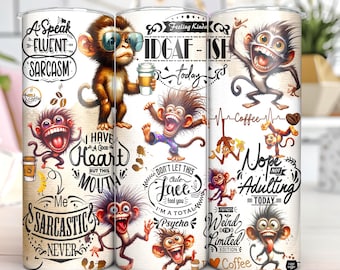 I Speak
FLUENT
SARCASM
Feeling Kinda
IDGAF-ISH
today
Coffee
I HAVE
A GOOD
Heart
BUT THIS
MOUTH
DON'T LET THIS
Cute
face
fool you
I'M A TOTAL
Psycho
Nope
NOT
Adulting
TODAY
Me
SARCASTIC
NEVER
Weird
LIMITED
EDITION
Coffee